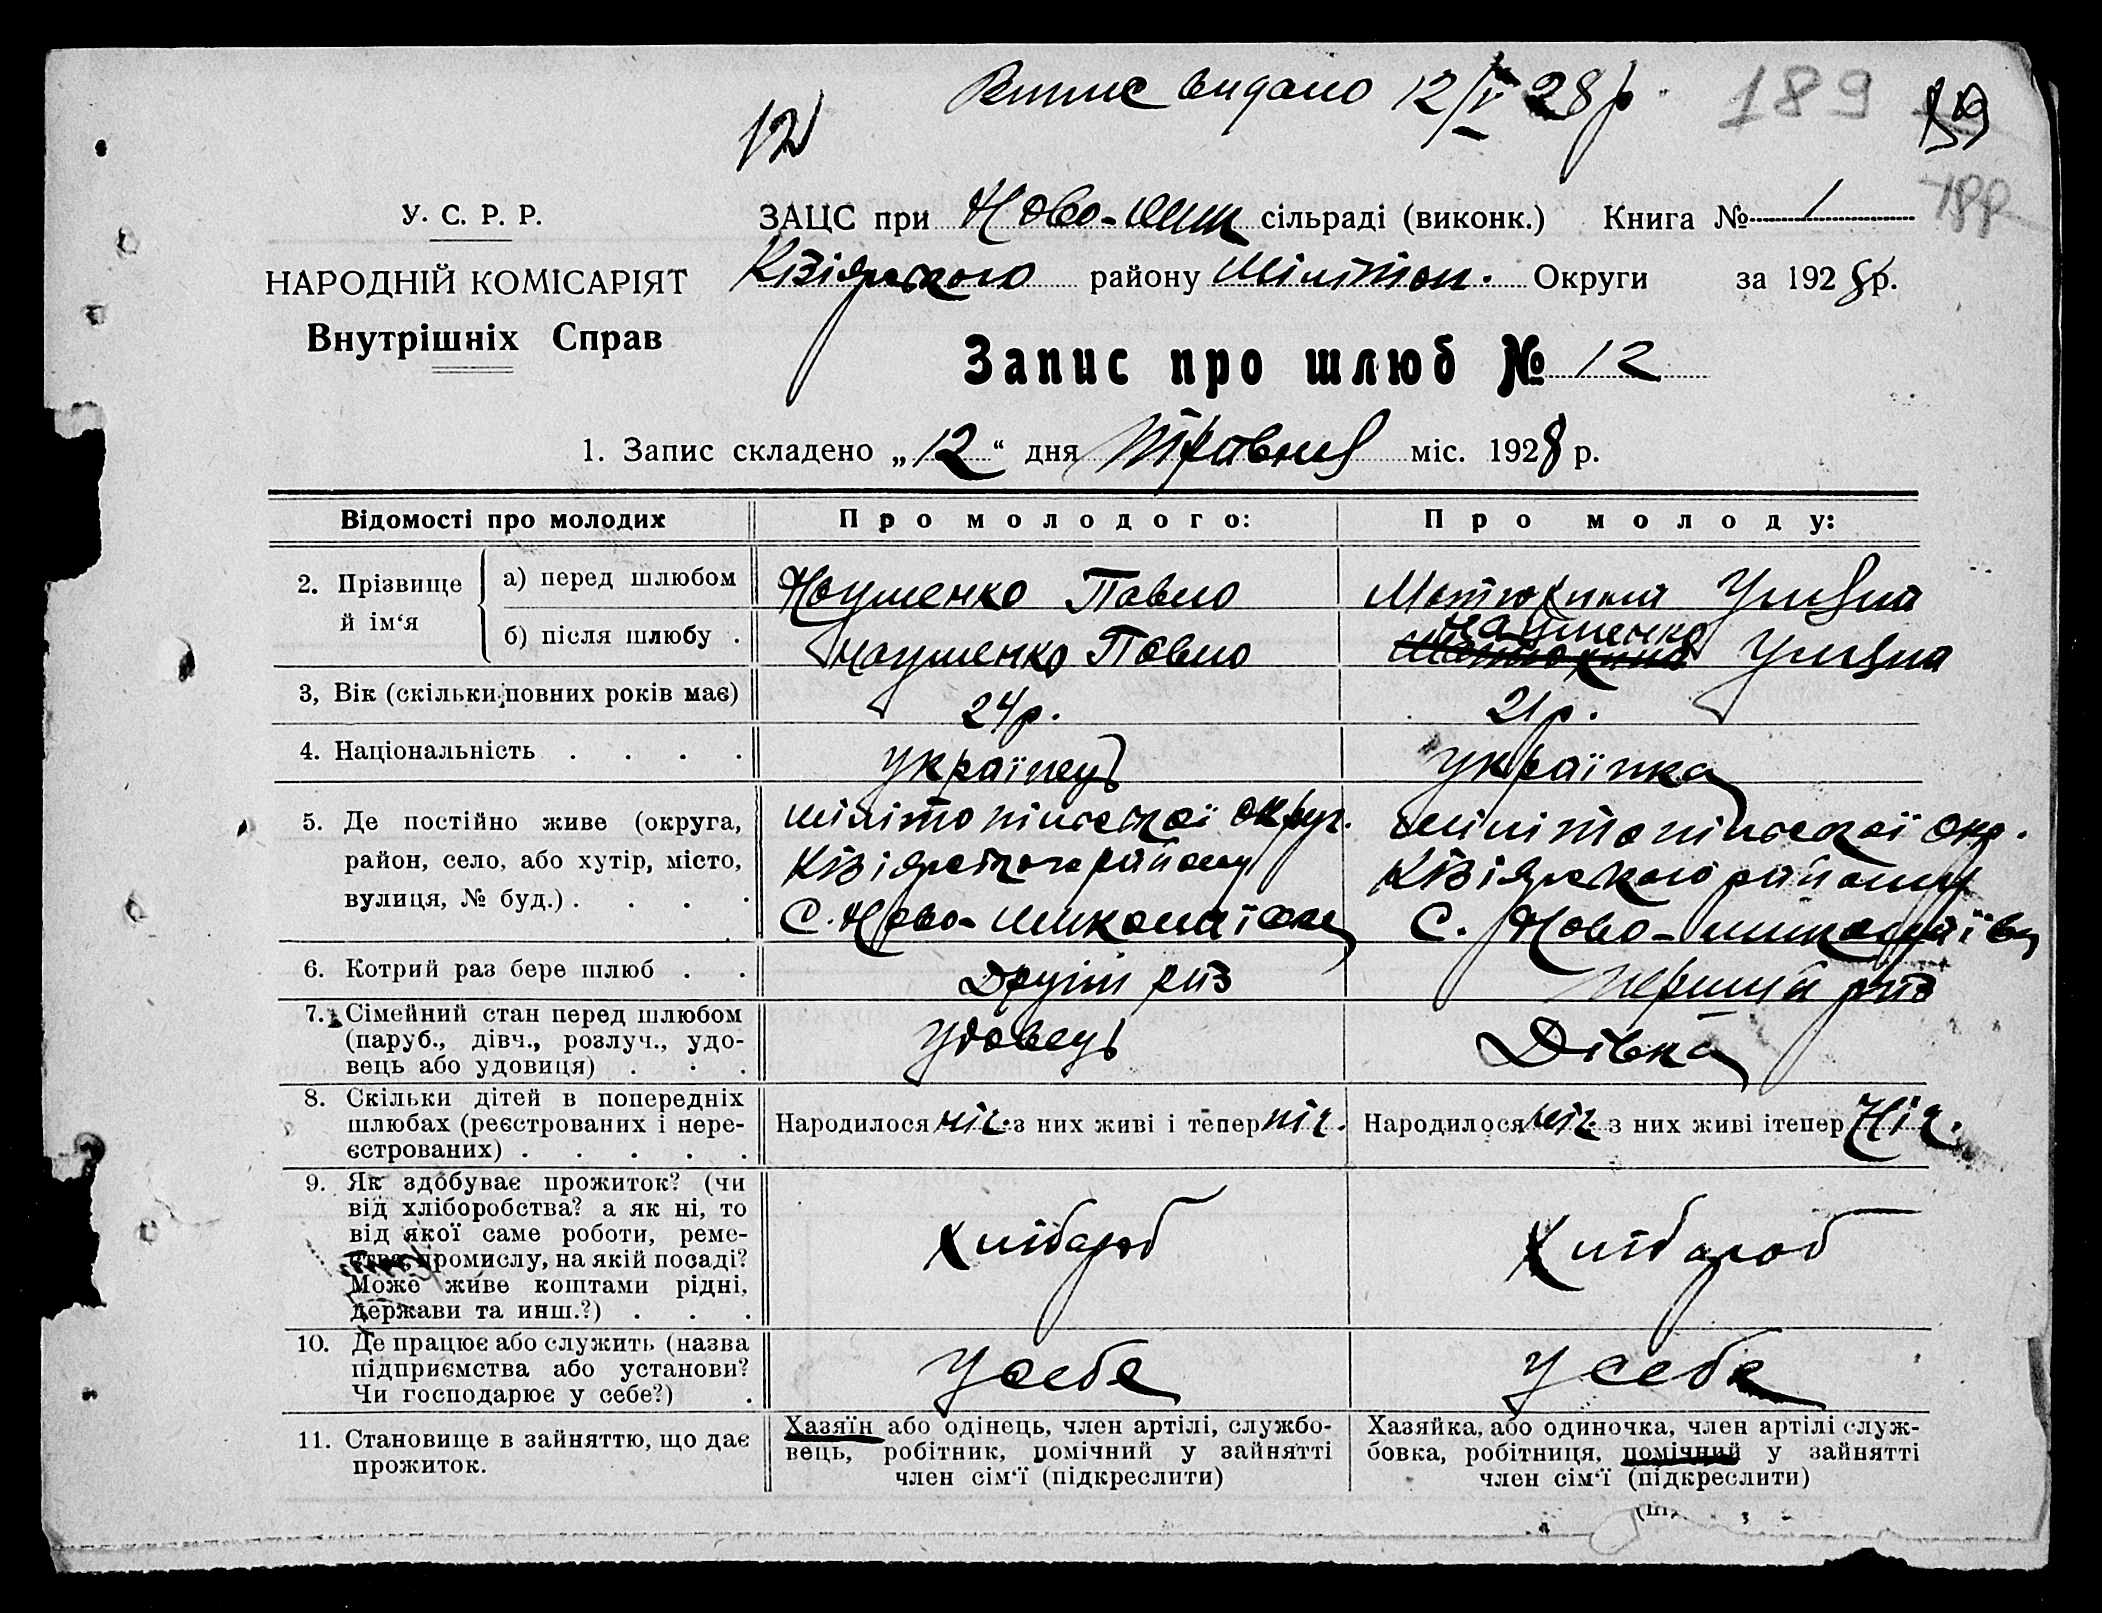 Випис видано 12/V 28 р. 189
12
У. С. Р. Р.
НАРОДНІЙ КОМІСАРІЯТ
Внутрішніх Справ
ЗАЦС при Ново-Мик сільраді (виконк.) Книга № 1
Кізіярського району Мілітоп. Округи за 1928 р.
Запис про шлюб № 12
1. Запис складено „12“ дня Травня міс. 1928 р.
Відомості про молодих
Про молодого:
Про молоду:
2. Прізвище й ім‘я
а) перед шлюбом
Наушенко Павло
Матюхина Улияна
б) після шлюбу .
Наушенко Павло
Наушенко
Матюхина Улияна
3, Вік (скільки повних років має)
24 р.
21 р.
4. Національність . . . .
Українець
Українка
5. Де постійно живе (округа,
район, село, або хутір, місто,
вулиця, № буд.) . . . .
Мілітопільської округ.
Кізіярського району
С. Ново-Миколаївка
Мілітопільської окр.
Кізіярського району
С. Ново-Миколаївц
6. Котрий раз бере шлюб . .
Другий раз
Перший раз
7. Сімейний стан перед шлюбом
(паруб., дівч., розлуч., удо-
вець або удовиця) . . .
Удовець
Дівка
8. Скільки дітей в попередніх
шлюбах (реєстрованих і нере-
єстрованих) . . . . .
Народилося ніг. з них живі і тепер ніг.
Народилося ніг. з них живі ітепер Ніг.
9. Як здобуває прожиток? (чи
від хліборобства? а як ні, то
від якої саме роботи, реме-
ства, промислу, на якій посаді?
Може живе коштами рідні,
держави та инш.?) . . .
Хлібороб
Хлібороб
10. Де працює або служить (назва
підприємства або установи?
Чи господарює у себе?) .
У себе
У себе
11. Становище в зайняттю, що дає
прожиток.
Хазяїн або одінець, член артілі, службо-
вець, робітник, помічний у зайнятті
член сім‘ї (підкреслити)
Хазяйка, або одиночка, член артілі служ-
бовка, робітниця, помічний у зайнятті
член сім‘ї (підкреслити)